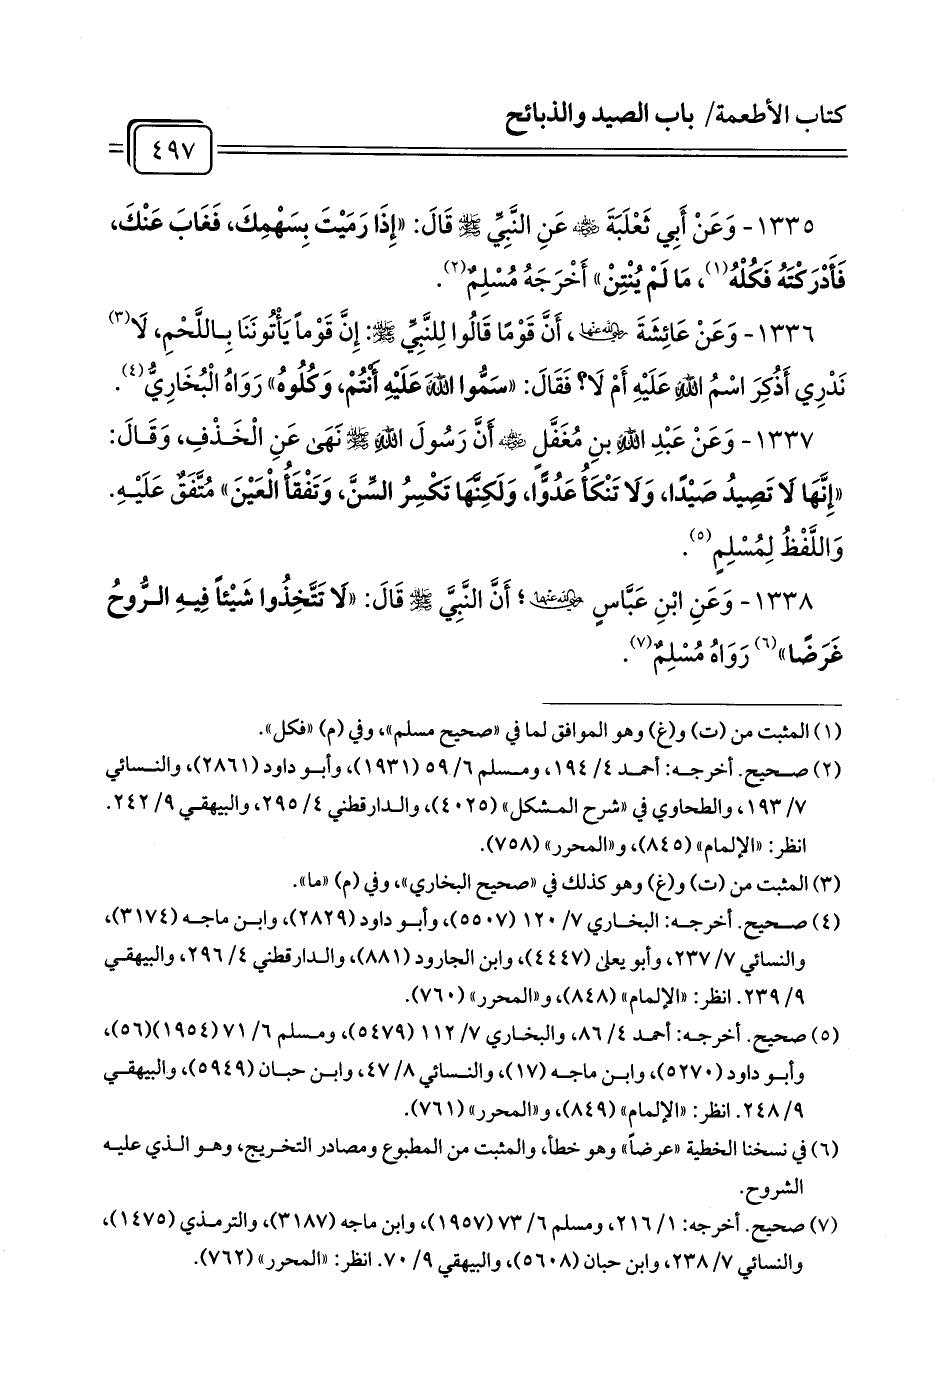 كتاب الأطعمة/ باب الصيد والذبائح
٤٩٧
١٣٣٥- وَعَنْ أَبِي ثَعْلَبَةَ ﵁ عَنِ النَّبِيِّ ﷺ قَالَ: «إِذَا رَمَيْتَ بِسَهْمِكَ، فَغَابَ عَنْكَ،
فَأَدْرَكْتَهُ فَكُلْهُ(١)، مَا لَمْ يُنْتِنْ» أَخْرَجَهُ مُسْلِمٌ(٢).
١٣٣٦- وَعَنْ عَائِشَةَ ﵂، أَنَّ قَوْمًا قَالُوا لِلنَّبِيِّ ﷺ: إِنَّ قَوْماً يَأْتُونَنَا بِاللَّحْمِ، لَا(٣)
نَدْرِي أَذُكِرَ اسْمُ اللَّهِ عَلَيْهِ أَمْ لَا؟ فَقَالَ: «سَمُّوا اللهَ عَلَيْهِ أَنْتُمْ، وَكُلُوهُ» رَوَاهُ الْبُخَارِيُّ(٤).
١٣٣٧- وَعَنْ عَبْدِ اللهِ بنِ مُغَفَّلٍ ﵁ أَنَّ رَسُولَ اللهِ ﷺ نَهَىٰ عَنِ الْخَذْفِ، وَقَالَ:
«إِنَّهَا لَا تَصِيدُ صَيْدًا، وَلَا تَنْكَأُ عَدُوًّا، وَلَكِنَّهَا تَكْسِرُ السِّنَّ، وَتَفْقَأُ الْعَيْنَ» مُتَّفَقٌ عَلَيْهِ.
وَاللَّفْظُ لِمُسْلِمٍ(٥).
١٣٣٨- وَعَنِ ابْنِ عَبَّاسٍ ﵄؛ أَنَّ النَّبِيَّ ﷺ قَالَ: «لَا تَتَّخِذُوا شَيْئاً فِيهِ الرُّوحُ
غَرَضًا»(٦) رَوَاهُ مُسْلِمٌ(٧).
(١) المثبت من (ت) و(غ) وهو الموافق لما في «صحيح مسلم»، وفي (م) «فكل».
(٢) صحيح. أخرجه: أحمد ٤/ ١٩٤، ومسلم ٦/ ٥٩ (١٩٣١)، وأبو داود (٢٨٦١)، والنسائي
٧/ ١٩٣، والطحاوي في «شرح المشكل» (٤٠٢٥)، والدارقطني ٤/ ٢٩٥، والبيهقي ٩/ ٢٤٢.
انظر: «الإلمام» (٨٤٥)، و«المحرر» (٧٥٨).
(٣) المثبت من (ت) و(غ) وهو كذلك في «صحيح البخاري»، وفي (م) «ما».
(٤) صحيح. أخرجه: البخاري ٧/ ١٢٠ (٥٥٠٧)، وأبو داود (٢٨٢٩)، وابن ماجه (٣١٧٤)،
والنسائي ٧/ ٢٣٧، وأبو يعلىٰ (٤٤٤٧)، وابن الجارود (٨٨١)، والدارقطني ٤/ ٢٩٦، والبيهقي
٩/ ٢٣٩. انظر: «الإلمام» (٨٤٨)، و«المحرر» (٧٦٠).
(٥) صحيح. أخرجه: أحمد ٤/ ٨٦، والبخاري ٧/ ١١٢ (٥٤٧٩)، ومسلم ٦/ ٧١ (١٩٥٤)(٥٦)،
وأبو داود (٥٢٧٠)، وابن ماجه (١٧)، والنسائي ٨/ ٤٧، وابن حبان (٥٩٤٩)، والبيهقي
٩/ ٢٤٨. انظر: «الإلمام» (٨٤٩)، و«المحرر» (٧٦١).
(٦) في نسخنا الخطية «عرضاً» وهو خطأ، والمثبت من المطبوع ومصادر التخريج، وهو الذي عليه
الشروح.
(٧) صحيح. أخرجه: ١/ ٢١٦، ومسلم ٦/ ٧٣ (١٩٥٧)، وابن ماجه (٣١٨٧)، والترمذي (١٤٧٥)،
والنسائي ٧/ ٢٣٨، وابن حبان (٥٦٠٨)، والبيهقي ٩/ ٧٠. انظر: «المحرر» (٧٦٢).